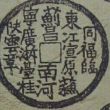 同福臨
東江宣原蘇
薊昌南河
寧廣浙臺桂
陝雲漳